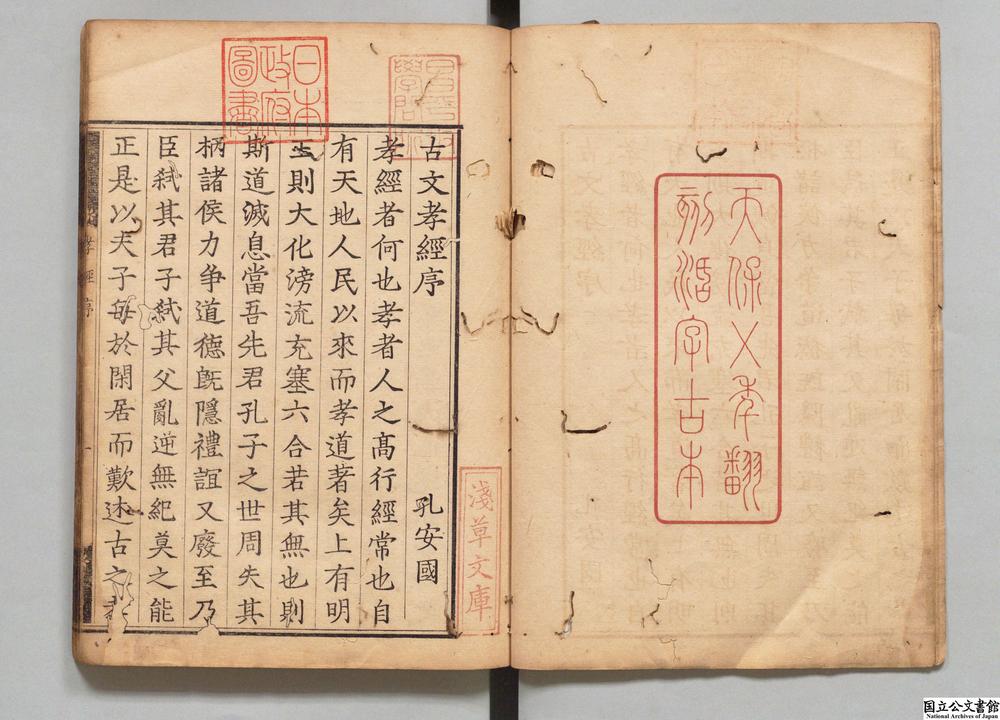 天保㐅年翻
刻活字古本
日本
政府
圖書
淺草文庫
古文孝經序　孔安國
孝經者何也孝者人之髙行經常也自
有天地人民以來而孝道著矣上有明
王則大化滂流充塞六合若其無也則
斯道滅息當吾先君孔子之世周失其
柄諸侯力争道德旣隱禮誼又廢至乃
臣弑其君子弑其父亂逆無紀莫之能
正是以夫子每於閑居而歎述古之孝
孝經序　一
国立公文書館
National Archives of Japan